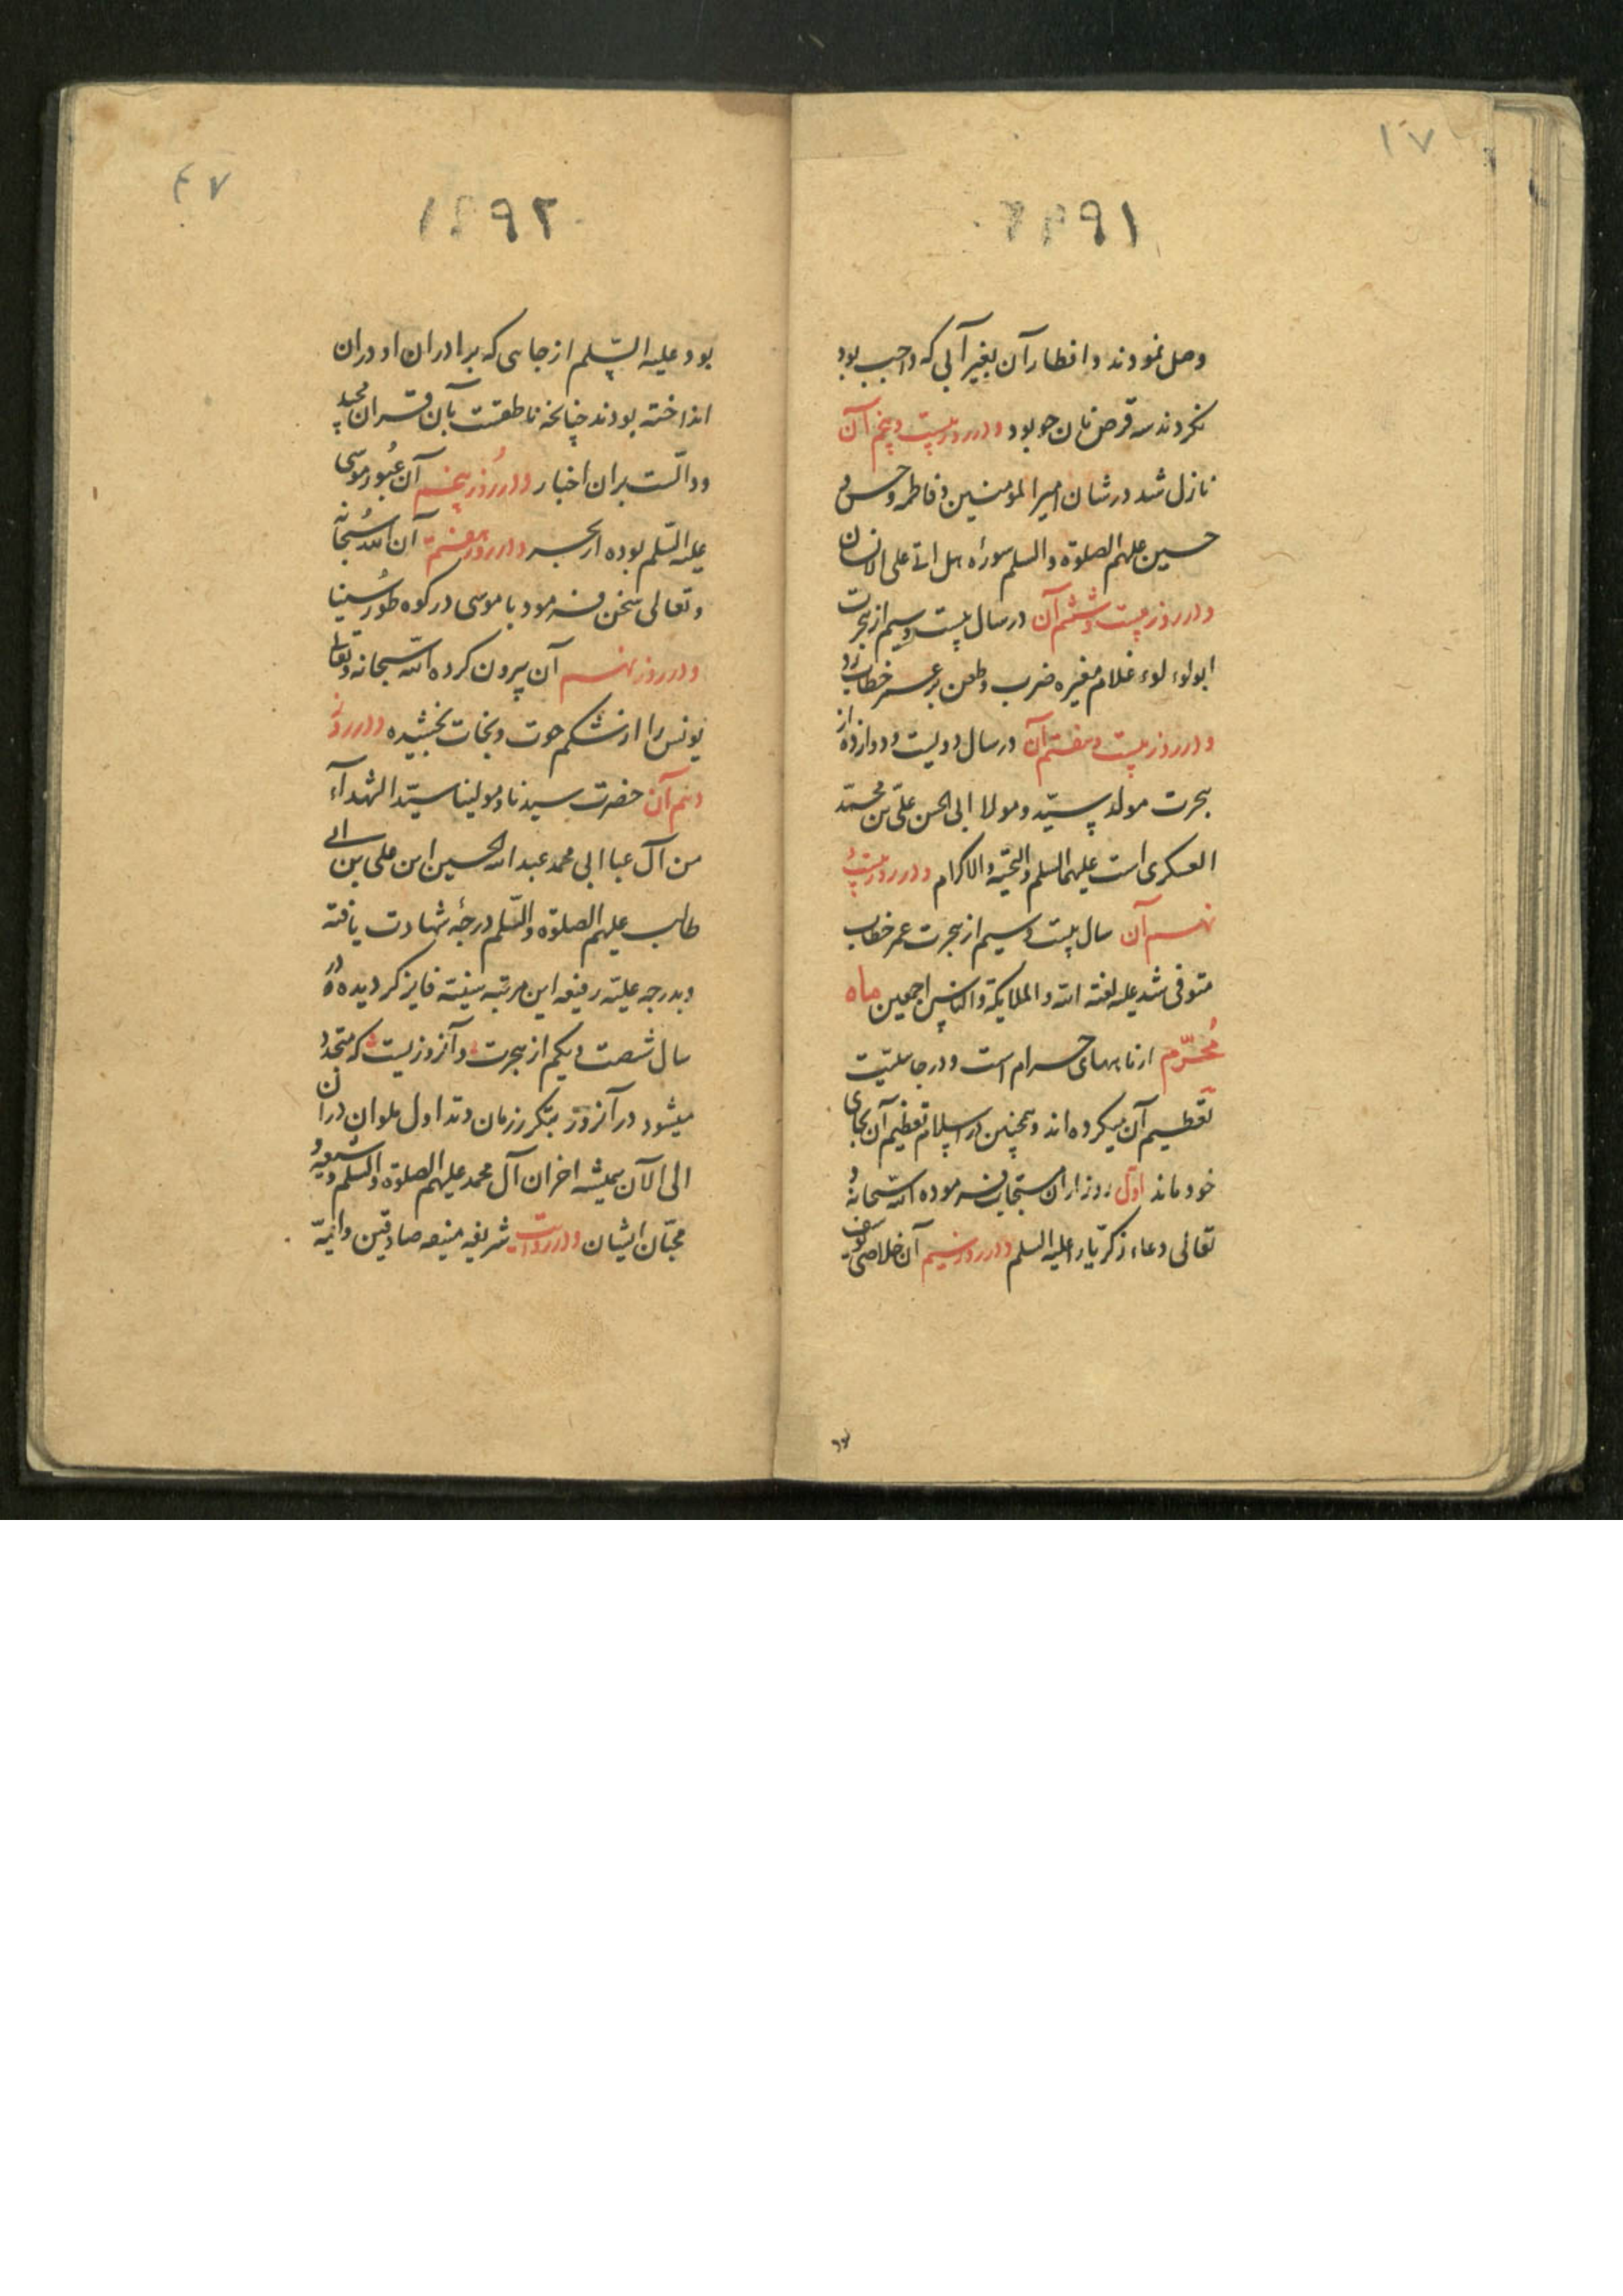 ۱۷
۱۹۹۱
وصل نمودند و افطار آن بغیر آبی که واجب بود
نکردند سه قرص نان جو بود و در روز بیست و پنجم آن
نازل شد در شان امیر المؤمنین و فاطمه و حسن و
حسین علیهم الصلوة و السلم سورۀ هل اتی علی الانسان
و در روز بیست و ششم آن در سال بیست و سیم از هجرت
ابولوء لوء غلام مغیره ضرب و طعن بر عمر خطاب زد
و در روز بیست و هفتم آن در سال دویست و دوازده از
هجرت مولد سیّد و مولا ابی الحسن علیّ بن محمّد
العسکری است علیهما السلم و التحیّه و الاکرام و در روز بیست و
نهم آن سال بیست و سیم از هجرت عمر خطاب
متوفی شد علیه لعنة الله و الملایکة و الناس اجمعین ماه
مُحرّم از ماههای حرام است و در جاهلیّت
تعظیم آن میکرده‌اند و همچنین در اسلام تعظیم آن بجای
خود ماند اوّل روز از ان مستجاب فرموده الله سبحانه و
تعالی دعاء زکرّیا را علیه السلم و در روز سیم آن خلاصی یوسف
۴۷
۱۹۹۲
بود علیه السّلم از چاهی که برادران او در ان
انداخته بودند چنانچه ناطقست بآن قران مجید
و دالّست بران اخبار و در رُوز پنجم آن عُبور موسی
علیه السّلم بوده از بحر و در روز هفتم آن الله سُبحانه
و تعالی سخن فرمود با موسی در کوه طور سُینا
و در روز نهم آن بیرون کرده الله سبحانه و تعالی
یونس را از شکم حوت و نجات بخشیده و در روز
دهم آن حضرت سیدنا و مولینا سیّد الشهدآء
من آل عبا ابی محمد عبد الله الحسین ابن علی بن ابی
طالب علیهم الصلوة و السّلم درجۀ شهادت یافته
و بدرجه علیّه رفیعه این مرتبه سنیّه فایز گردیده در
سال شصت و یکم از هجرت و آنروزیست که متجدد
میشود در آنروز بتکرر زمان و تداول ملوان در ان
الی الآن همیشه احزان آل محمد علیهم الصلوة و السلم و شیعه و
محبّان ایشان و در روایت شریفه منیعه صادقین و ائمّه